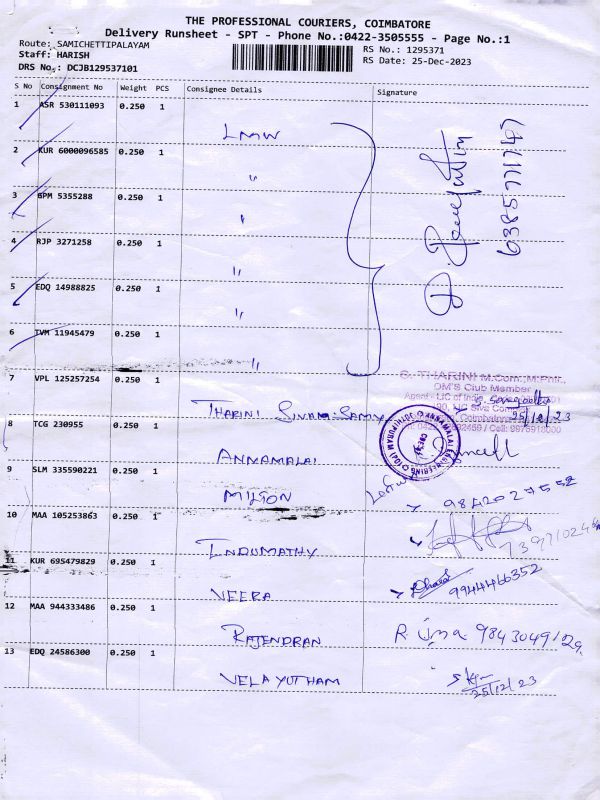 THE PROFESSIONAL COURIERS, COIMBATORE
Delivery Runsheet - SPT - Phone No.:0422-3505555 - Page No.:1
Route: SAMICHETTIPALAYAM
Staff: HARISH
DRS No.: DCJB129537101
RS No.: 1295371
RS Date: 25-Dec-2023
S No Consignment No Weight PCS Consignee Details Signature
1 ASR 530111093 0.250 1
LMW
2 KUR 6000096585 0.250 1
〃
3 BPM 5355288 0.250 1
〃
6385771747
4 RJP 3271258 0.250 1
〃
5 EDQ 14988825 0.250 1
〃
6 TVM 11945479 0.250 1
〃
7 VPL 125257254 0.250 1
THARINI SIVAM SAMY
S. THARINI M.Com.,M.Phil.,
DM'S Club Member
Agent - LIC of India
25/12/23
8 TCG 230955 0.250 1
ANNAMALAI
9 SLM 335590221 0.250 1
MILTON
9842027552
10 MAA 105253863 0.250 1
INDUMATHY
11 KUR 695479829 0.250 1
VEERA
9944466352
12 MAA 944333486 0.250 1
RAJENDRAN
R. Uma 9843049129
13 EDQ 24586300 0.250 1
VELAYUTHAM
25/12/23